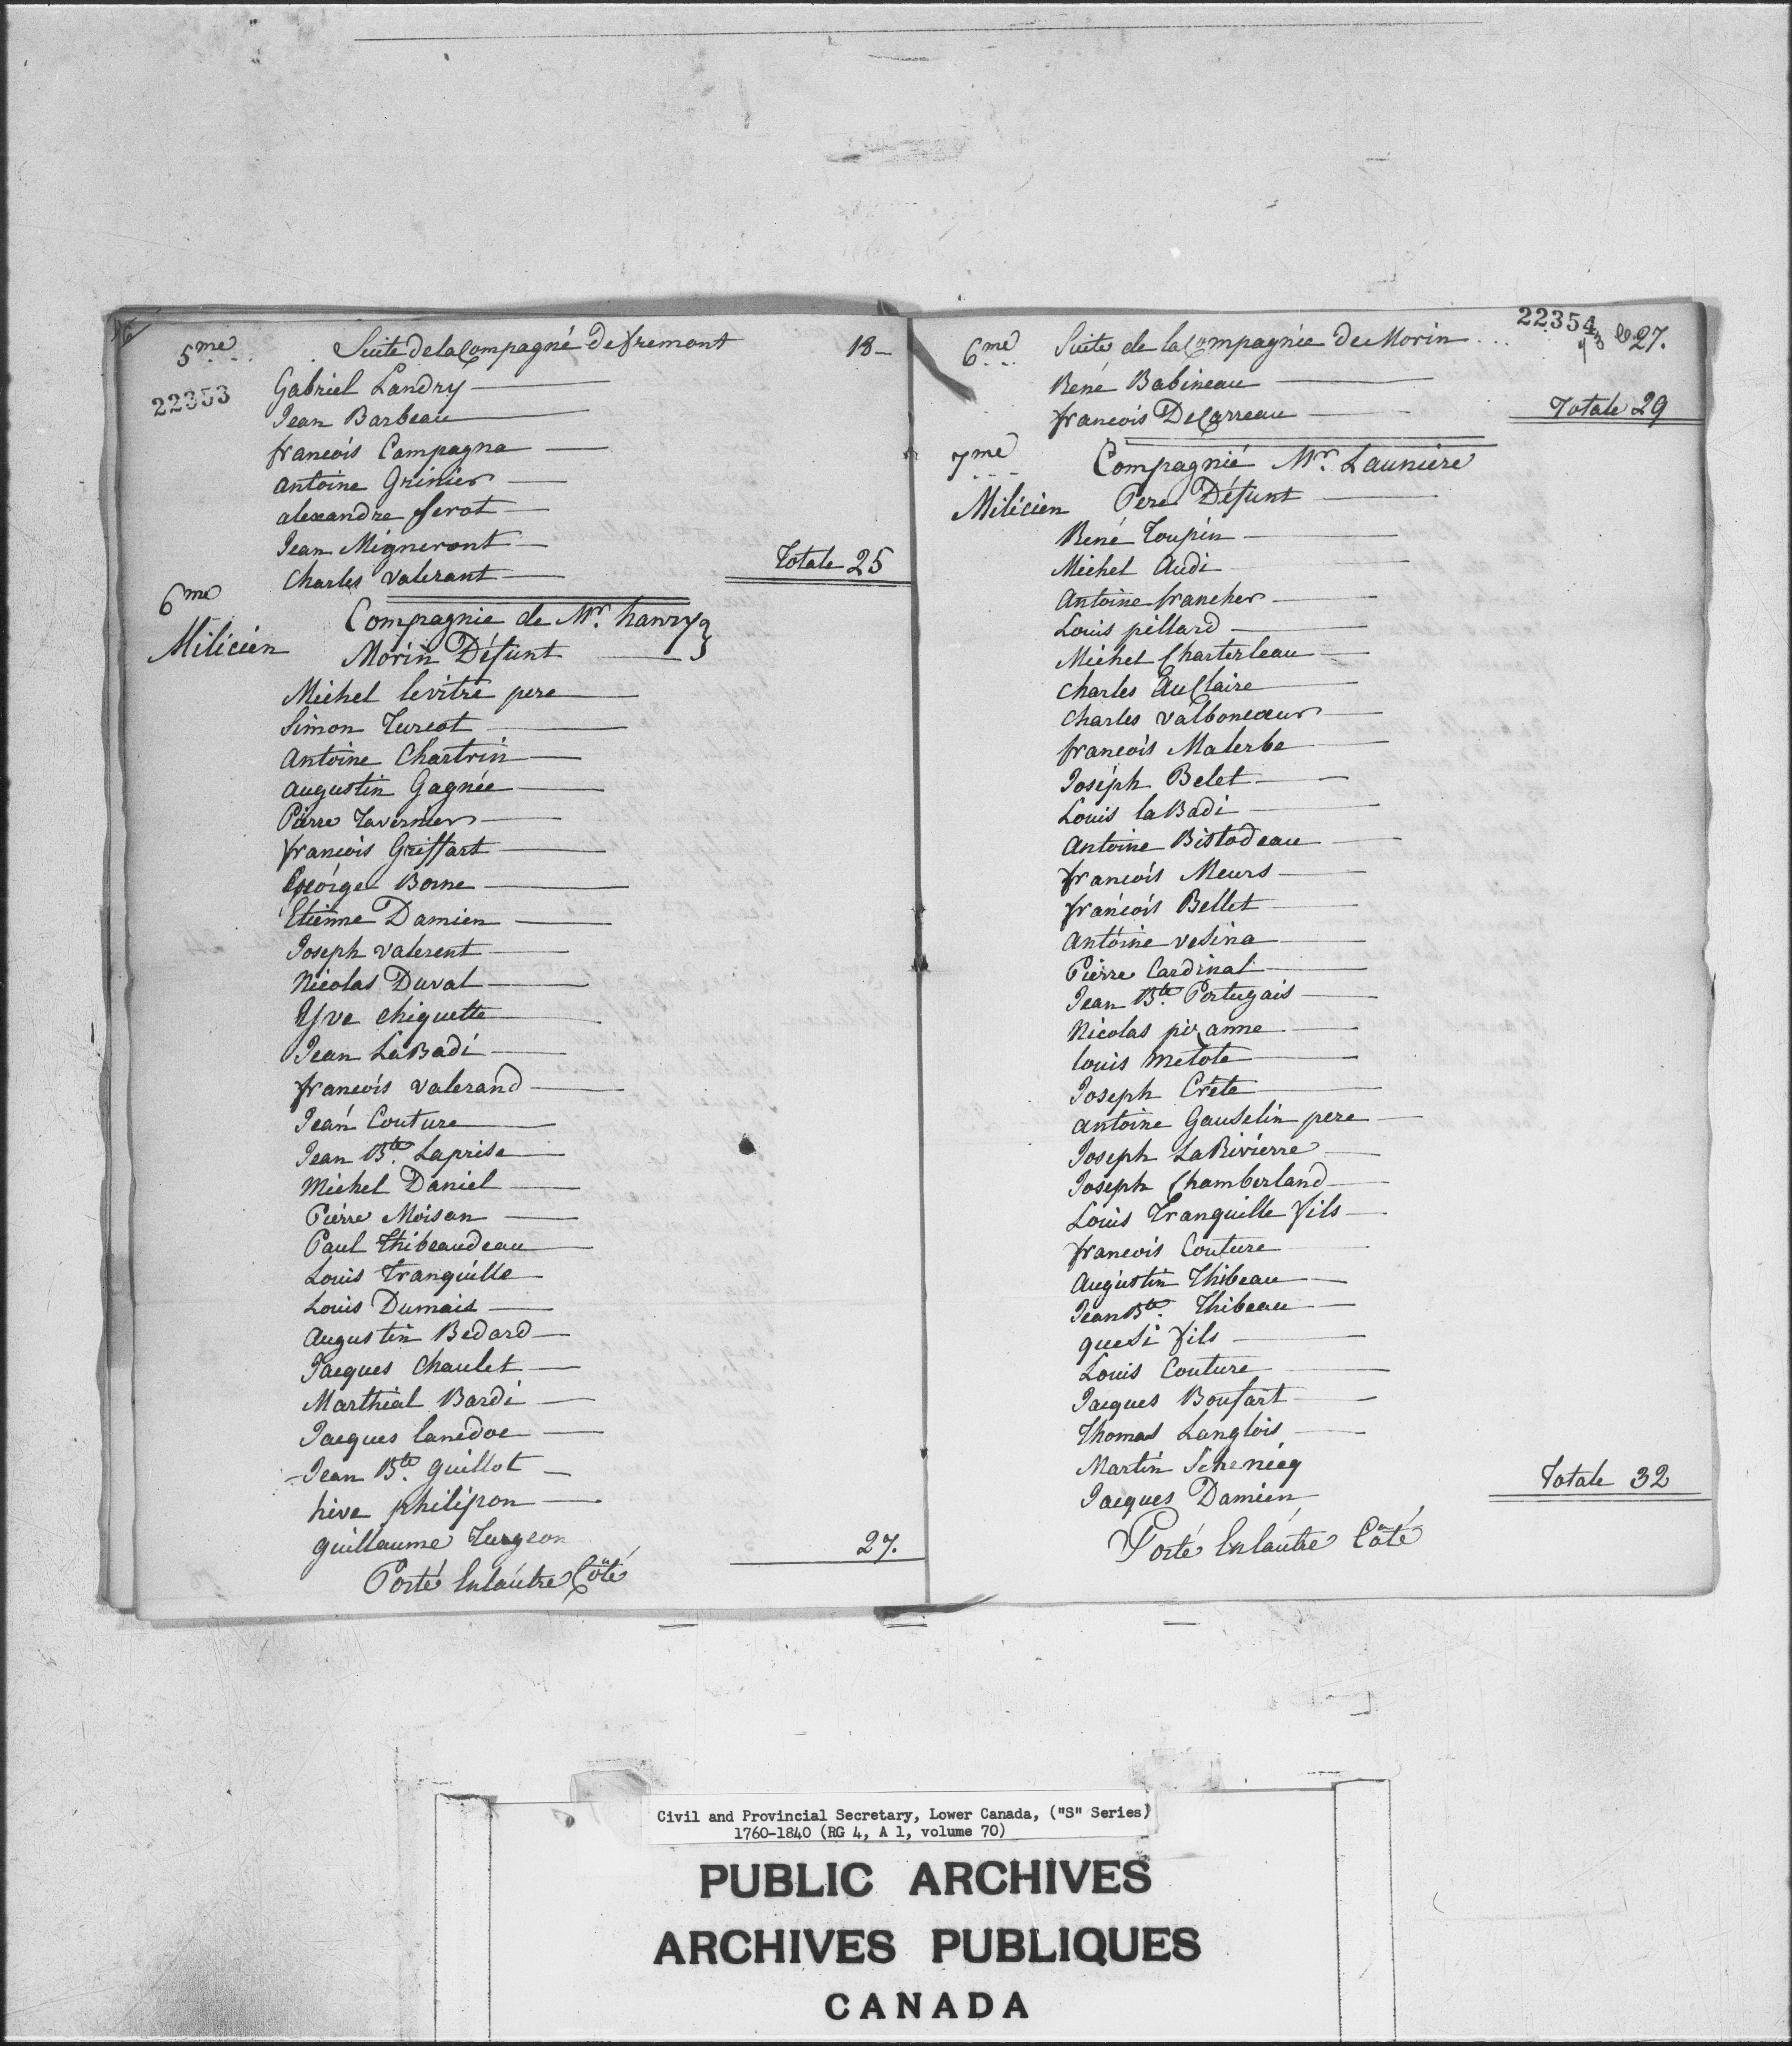 5me Suite de la Compagnie de fremont 18-
22353
Gabriel Landry
Jean Barbeau
francois Campagna
Antoine Grinier
alexandre ferot
Jean Migneront
Charles Valerant
Totale 25
6me Compagnie de Mr. hanry
Milicien Morin Défunt
Michel levitre pere
Simon Turcot
Antoine Chartrin
Augustin Gagnée
Pierre Tavernier
francois Griffart
George Borne
Etienne Damien
Joseph Valerent
Nicolas Duval
Yve chiquette
Jean LaBadi
francois Valerand
Jean Couture
Jean Bte. Laprise
Michel Daniel
Pierre Moisan
Paul Thibeaudeau
Louis Tranquille
Louis Dumais
Augustin Bedard
Jacques Chaulet
Marthial Bardi
Jacques lanedoe
Jean Bte. Guillot
hive philipon
Guillaume Turgeon
27.
Porté Enlautre Côté
22354
6me Suite de la Compagnie de Morin 27.
René Babineau
francois DeCarreau
Totale 29
7me Compagnié Mr. Launiere
Milicien Pere Défunt
René Toupin
Michel Audi
Antoine francher
Louis pillard
Michel Charterleau
Charles AuClaire
Charles Valboncoeur
francois Malerbe
Joseph Belet
Louis laBadi
Antoine Bistodeau
francois Meurs
francois Bellet
Antoine veSina
Pierre Cardinal
Jean Bte. Portugais
Nicolas pizanne
louis metote
Joseph Créte
Antoine Gauselin pere
Joseph LaRivierre
Joseph Chamberland
Louis Tranquille fils
francois Couture
Augustin Thibeau
Jean Bte. Thibeau
queSi fils
Louis Couture
Jacques Boufart
Thomas Langlois
Martin
Jacques Damien
Totale 32
Porté Enlautre Côté
Civil and Provincial Secretary, Lower Canada, ("S" Series)
1760-1840 (RG 4, A 1, volume 70)
PUBLIC ARCHIVES
ARCHIVES PUBLIQUES
CANADA